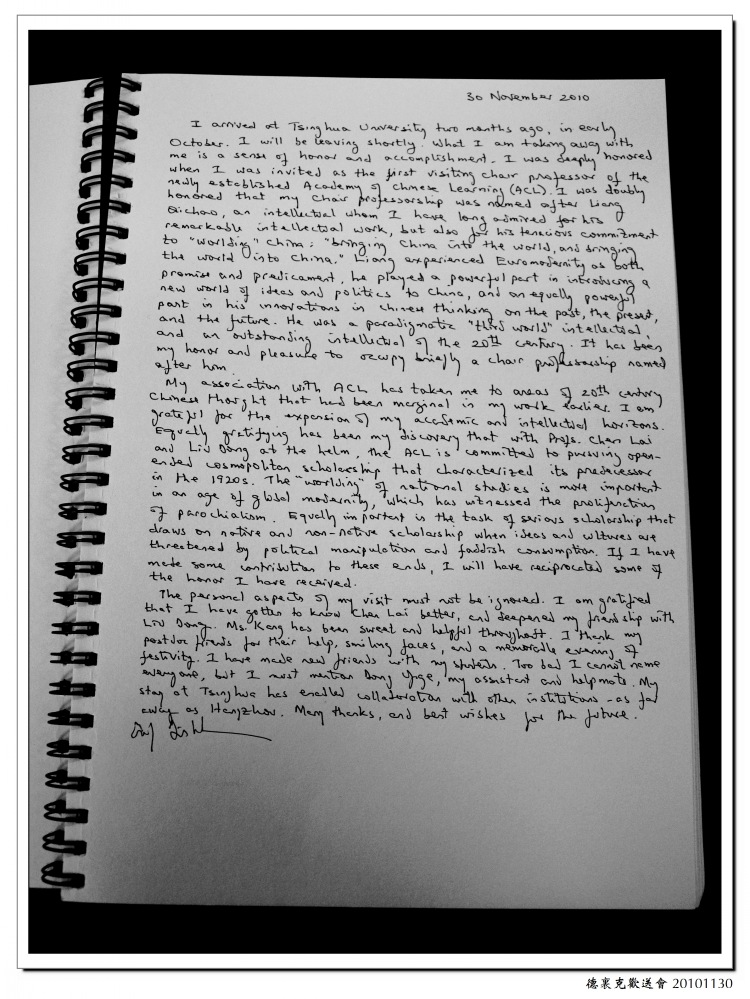 30 November 2010
I arrived at Tsinghua University two months ago, in early
October. I will be leaving shortly. What I am taking away with
me is a sense of honor and accomplishment. I was deeply honored
when I was invited as the first visiting chair professor of the
newly established Academy of Chinese Learning (ACL). I was doubly
honored that my chair professorship was named after Liang
Qichao, an intellectual whom I have long admired for his
remarkable intellectual work, but also for his tenacious commitment
to "worlding" China: "bringing China into the world, and bringing
the world into China." Liang experienced Euromodernity as both
promise and predicament, he played a powerful part in introducing a
new world of ideas and politics to China, and an equally powerful
part in his innovations in Chinese thinking on the past, the present,
and the future. He was a paradigmatic "third world" intellectual,
and an outstanding intellectual of the 20th century. It has been
my honor and pleasure to occupy briefly a chair professorship named
after him.
My association with ACL has taken me to areas of 20th century
Chinese thought that had been marginal in my work earlier. I am
grateful for the expansion of my academic and intellectual horizons.
Equally gratifying has been my discovery that with Profs. Chen Lai
and Liu Dong at the helm, the ACL is committed to pursuing open-
ended cosmopolitan scholarship that characterized its predecessor
in the 1920s. The "worlding" of national studies is more important
in an age of global modernity, which has witnessed the proliferation
of parochialism. Equally important is the task of serious scholarship that
draws on native and non-native scholarship when ideas and cultures are
threatened by political manipulation and faddish consumption. If I have
made some contribution to these ends, I will have reciprocated some of
the honor I have received.
The personal aspects of my visit must not be ignored. I am gratified
that I have gotten to know Chen Lai better, and deepened my friendship with
Liu Dong. Ms. Kang has been sweet and helpful throughout. I thank my
postdoc friends for their help, smiling faces, and a memorable evening of
festivity. I have made new friends with my students. Too bad I cannot name
everyone, but I must mention Dong my assistant and helpmate. My
stay at Tsinghua has enabled collaboration with other institutions - as far
away as Hangzhou. Many thanks, and best wishes for the future.
德裏克歡送會 20101130